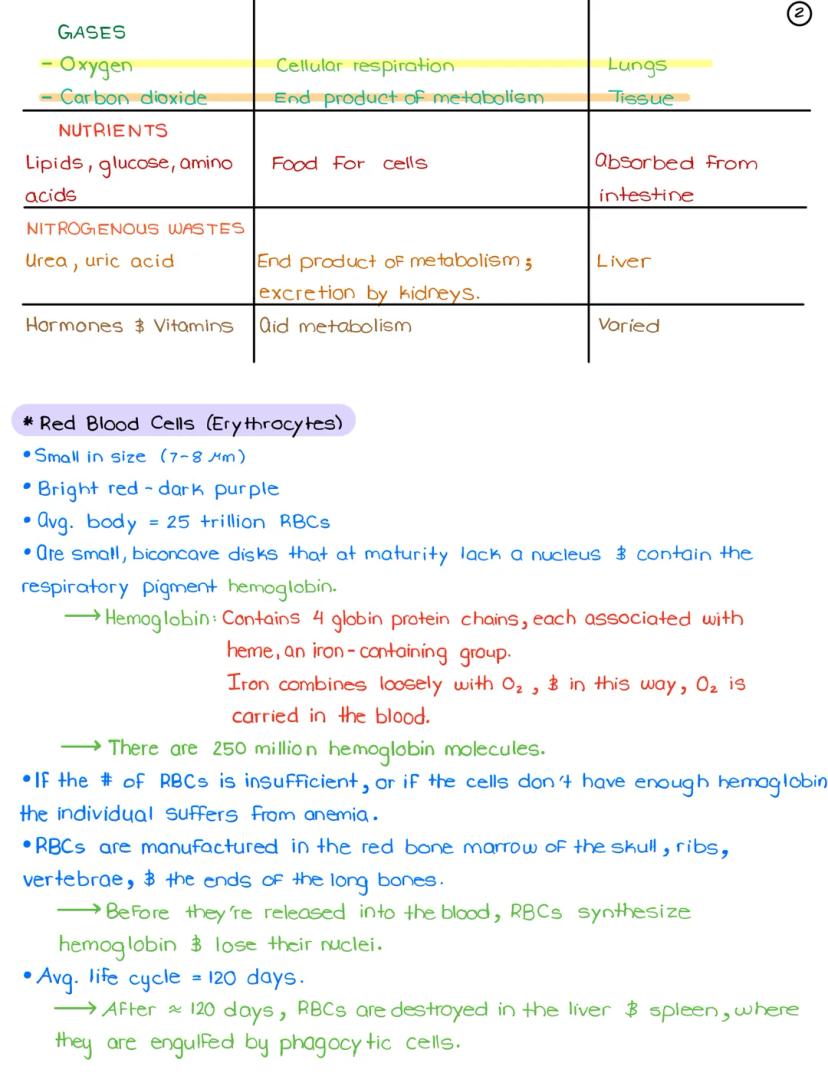 2
GASES
- Oxygen Cellular respiration Lungs
- Carbon dioxide End product of metabolism Tissue
NUTRIENTS
Lipids, glucose, amino Food for cells Absorbed from
acids intestine
NITROGENOUS WASTES
Urea, uric acid End product of metabolism; Liver
excretion by kidneys.
Hormones & Vitamins Aid metabolism Varied
* Red Blood Cells (Erythrocytes)
• Small in size (7-8 μm)
• Bright red - dark purple
• Avg. body = 25 trillion RBCs
• Are small, biconcave disks that at maturity lack a nucleus & contain the
respiratory pigment hemoglobin.
→ Hemoglobin: Contains 4 globin protein chains, each associated with
heme, an iron-containing group.
Iron combines loosely with O₂, & in this way, O₂ is
carried in the blood.
→ There are 250 million hemoglobin molecules.
• If the # of RBCs is insufficient, or if the cells don't have enough hemoglobin
the individual suffers from anemia.
• RBCs are manufactured in the red bone marrow of the skull, ribs,
vertebrae, & the ends of the long bones.
→ Before they're released into the blood, RBCs synthesize
hemoglobin & lose their nuclei.
• Avg. life cycle = 120 days.
→ After ≈ 120 days, RBCs are destroyed in the liver & spleen, where
they are engulfed by phagocytic cells.